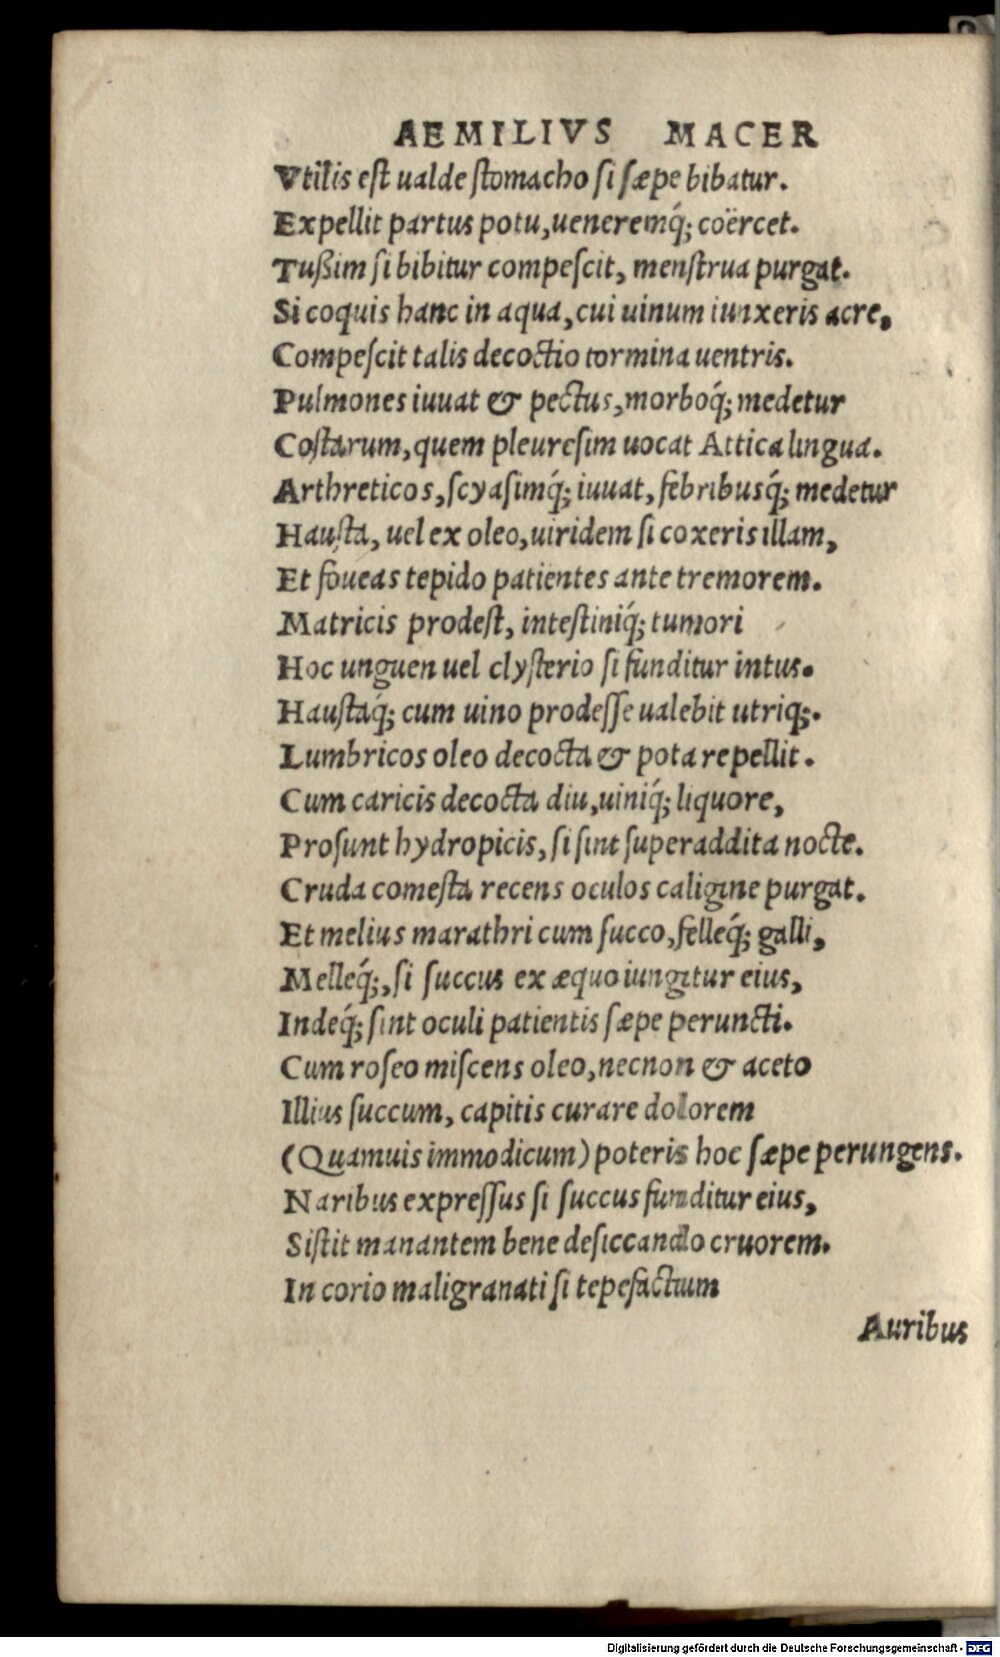 AEMILIVS MACER
Vtilis est ualde ſtomacho ſi ſæpe bibatur.
Expellit partus potu, ueneremq́; coërcet.
Tußim ſi bibitur compeſcit, menſtrua purgat.
Si coquis hanc in aqua, cui uinum iunxeris acre,
Compeſcit talis decoctio tormina uentris.
Pulmones iuuat & pectus, morboq́; medetur
Coſtarum, quem pleureſim uocat Attica lingua.
Arthreticos, ſcyaſimq́; iuuat, febribusq́; medetur
Hauſta, uel ex oleo, uiridem ſi coxeris illam,
Et foueas tepido patientes ante tremorem.
Matricis prodeſt, inteſtiniq́; tumori
Hoc unguen uel clyſterio ſi funditur intus.
Hauſtaq́; cum uino prodeſſe ualebit utriq;.
Lumbricos oleo decocta & pota repellit.
Cum caricis decocta diu, uiniq́; liquore,
Proſunt hydropicis, ſi ſint ſuperaddita nocte.
Cruda comeſta recens oculos caligine purgat.
Et melius marathri cum ſucco, felleq́; galli,
Melleq́;, ſi ſuccus ex æquo iungitur eius,
Indeq́; ſint oculi patientis ſæpe peruncti.
Cum roſeo miſcens oleo, necnon & aceto
Illius ſuccum, capitis curare dolorem
(Quamuis immodicum) poteris hoc ſæpe perungens.
Naribus expreſſus ſi ſuccus funditur eius,
Siſtit manantem bene deſiccando cruorem.
In corio maligranati ſi tepefactum
Auribus
Digitalisierung gefördert durch die Deutsche Forschungsgemeinschaft - DFG